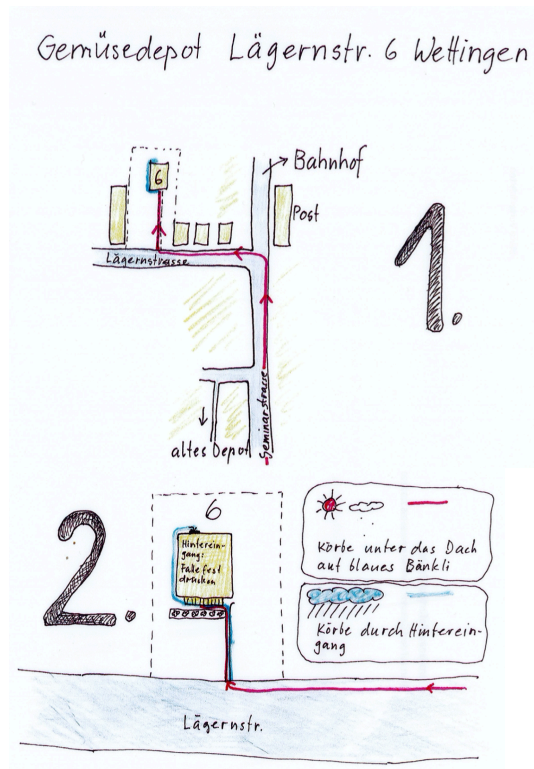 Gemüsedepot Lägernstr. 6 Wettingen
Bahnhof
6
Post
1.
Lägernstrasse
Seminarstrasse
altes Depot
2.
6
Hinterein-
gang:
Falle fest
drücken
Körbe unter das Dach
auf blaues Bänkli
Körbe durch Hinterein-
gang
Lägernstr.